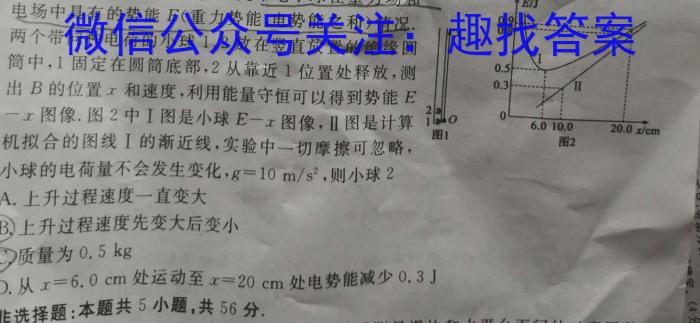 电场中具有的势能E(重力势能
微信公众号关注：趣找答案
两个带
筒中,1固定在圆筒底部,2从靠近1位置处释放,测
出B的位置x和速度,利用能量守恒可以得到势能E
-x图像.图2中I图是小球E-x图像,II图是计算
机拟合的图线I的渐近线,实验中一切摩擦可忽略,
小球的电荷量不会发生变化,g=10 m/s²,则小球2
A.上升过程速度一直变大
B.上升过程速度先变大后变小
C.质量为0.5 kg
D.从x=6.0 cm处运动至x=20 cm处电势能减少0.3 J
非选择题:本题共5小题,共56分.
2
1
O
图1
0.5
0.3
0
I
II
6.0 10.0 20.0 x/cm
图2